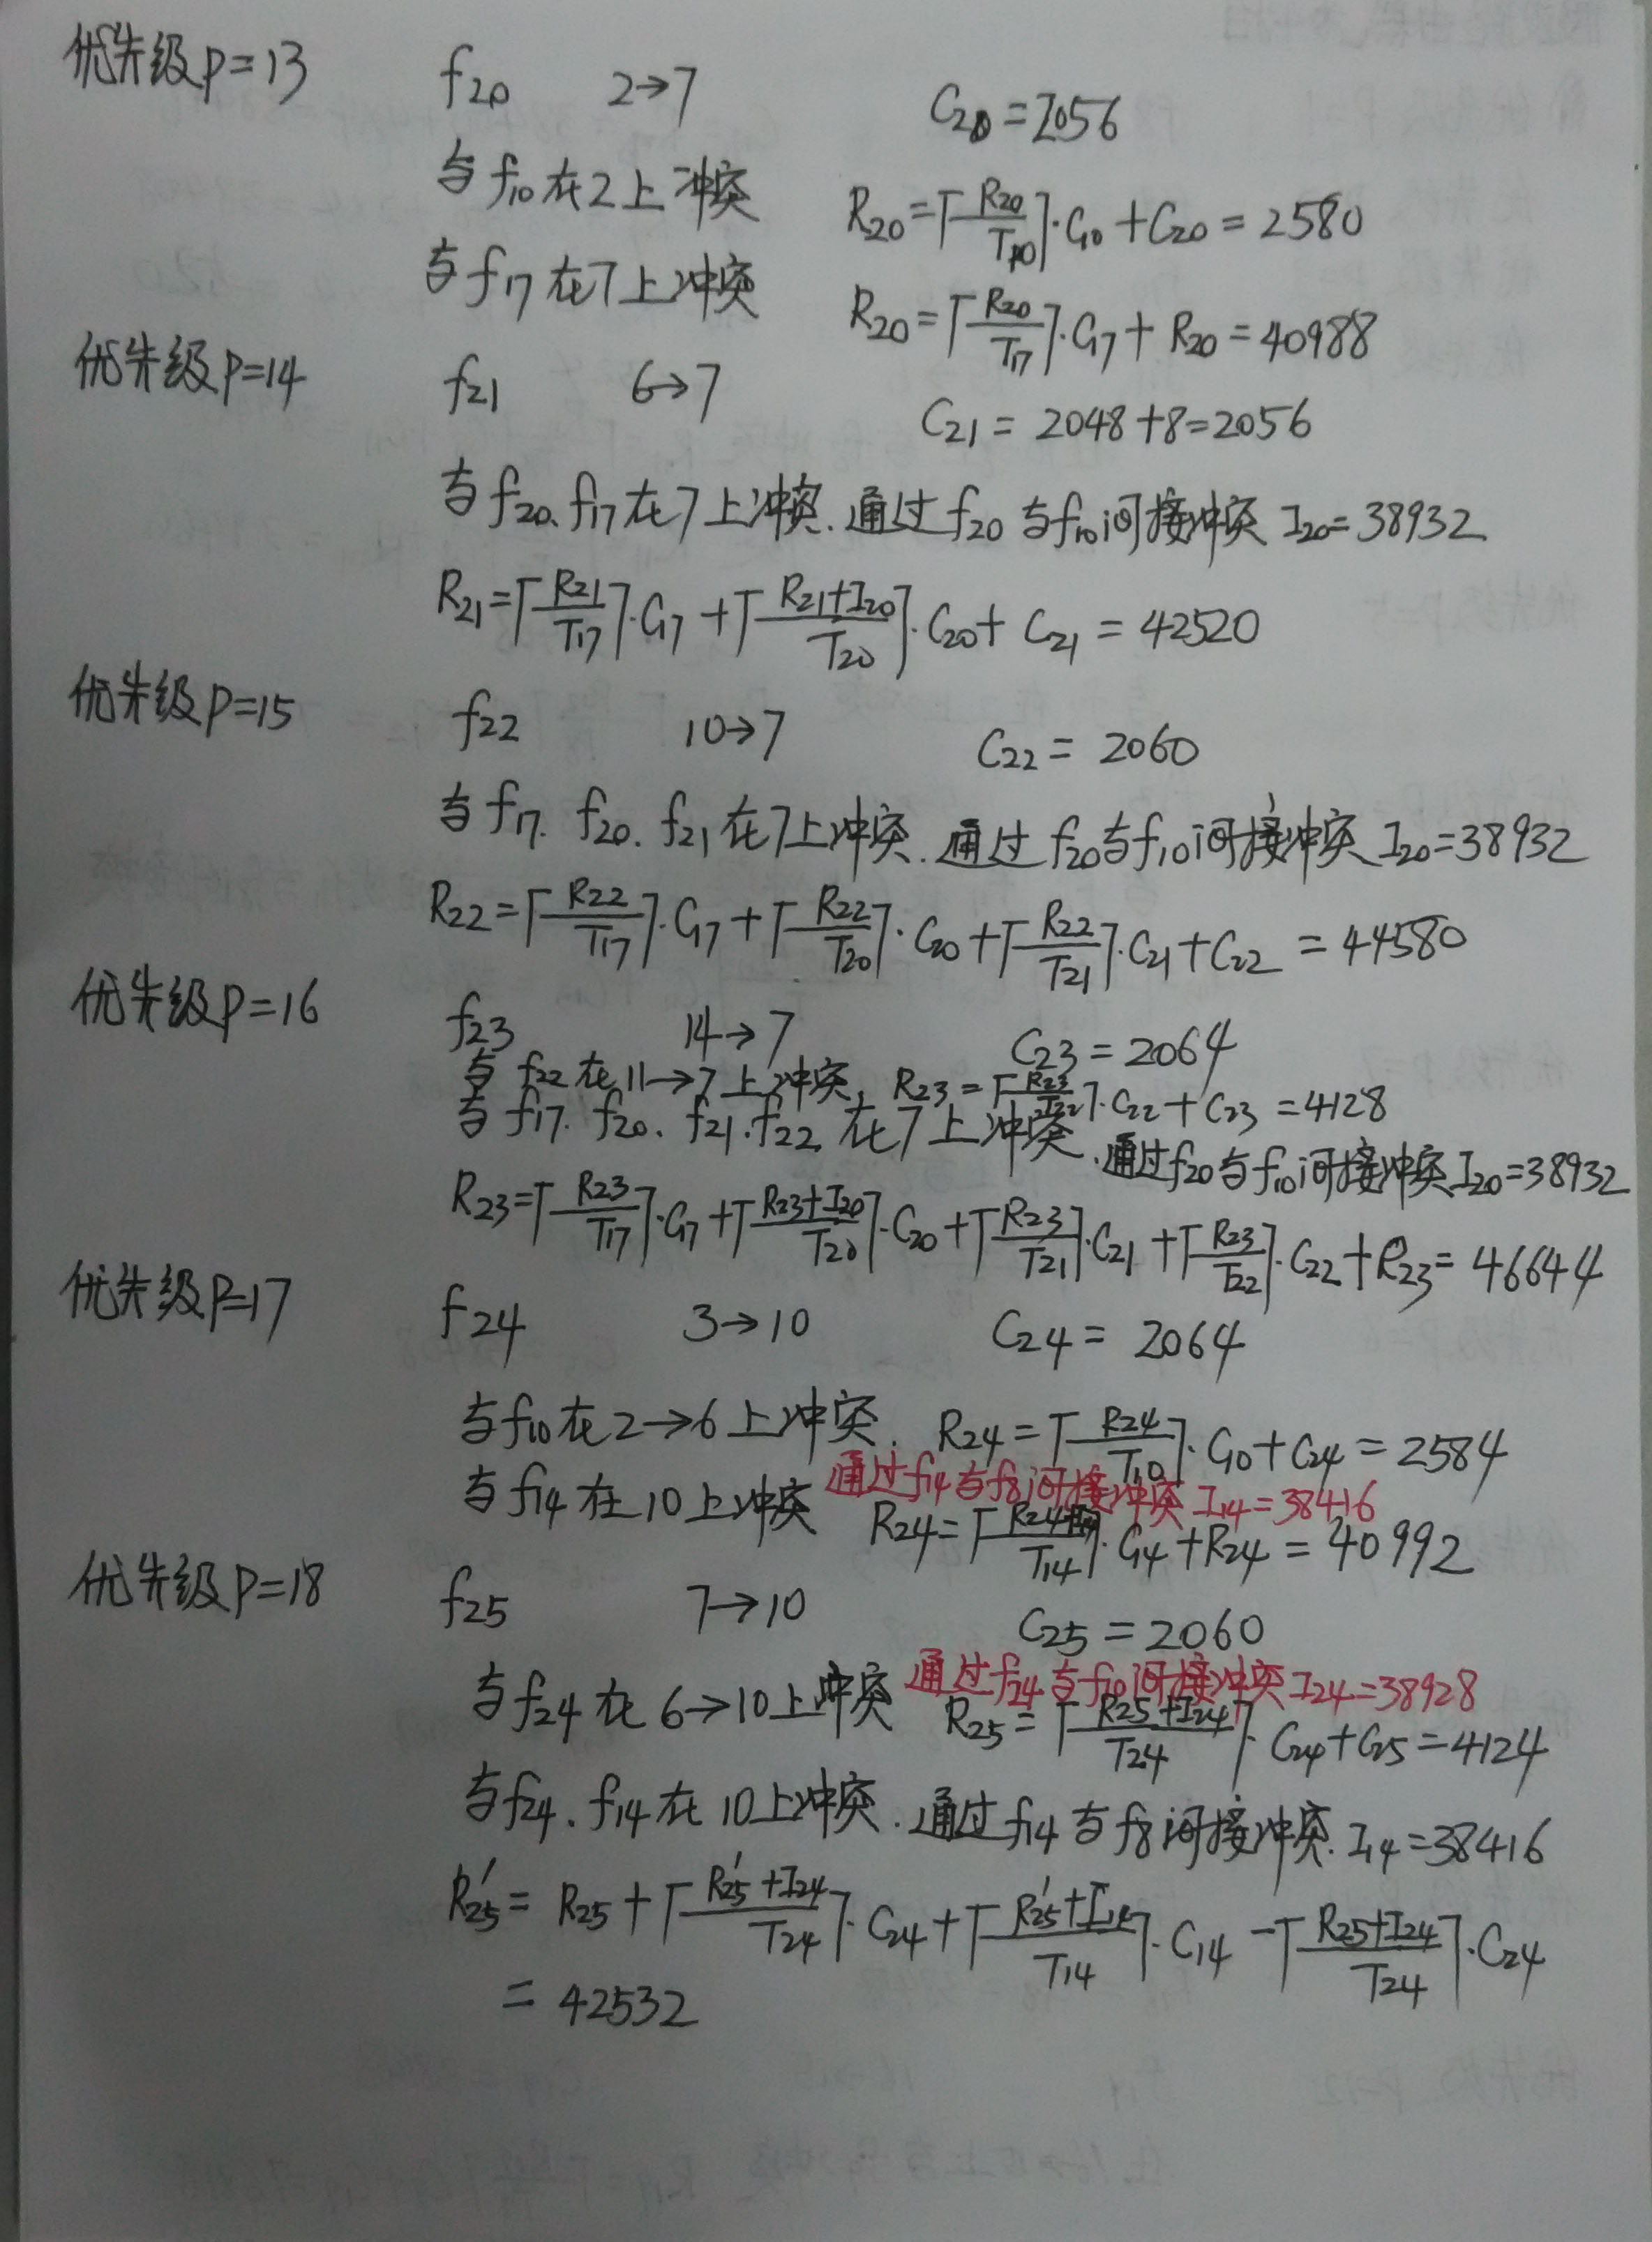 优先级P=13 f20 2→7 C20=2056
与f10在2上冲突 R20=⌈R20/T10⌉·C10+C20=2580
与f17在7上冲突 R20=⌈R20/T17⌉·C17+R20=40988
优先级P=14 f21 6→7 C21=2048+8=2056
与f20、f17在7上冲突.通过f20与f10间接冲突 I20=38932
R21=⌈R21/T17⌉·C17+⌈R21+I20/T20⌉·C20+C21=42520
优先级P=15 f22 10→7 C22=2060
与f17. f20. f21在7上冲突.通过f20与f10间接冲突 I20=38932
R22=⌈R22/T17⌉·C17+⌈R22/T20⌉·C20+⌈R22/T21⌉·C21+C22=44580
优先级P=16 f23 14→7 C23=2064
与f22在11→7上冲突, R23=⌈R23/T22⌉·C22+C23=4128
与f17. f20、f21.f22在7上冲突.通过f20与f10间接冲突I20=38932
R23=⌈R23/T17⌉·C17+⌈R23+I20/T20⌉·C20+⌈R23/T21⌉·C21+⌈R23/T22⌉·C22+R23=46644
优先级P=17 f24 3→10 C24=2064
与f10在2→6上冲突. R24=⌈R24/T10⌉·C10+C24=2584
与f14在10上冲突 通过f14与f8间接冲突 I14=38416
R24=⌈R24+I14/T14⌉·C14+R24=40992
优先级P=18 f25 7→10 C25=2060
与f24在6→10上冲突 通过f24与f10间接冲突 I24=38928
R25=⌈R25+I24/T24⌉·C24+C25=4124
与f24、f14在10上冲突.通过f14与f8间接冲突. I14=38416
R25'=R25+⌈R25'+I24/T24⌉·C24+⌈R25'+I14/T14⌉·C14-⌈R25+I24/T24⌉·C24
=42532